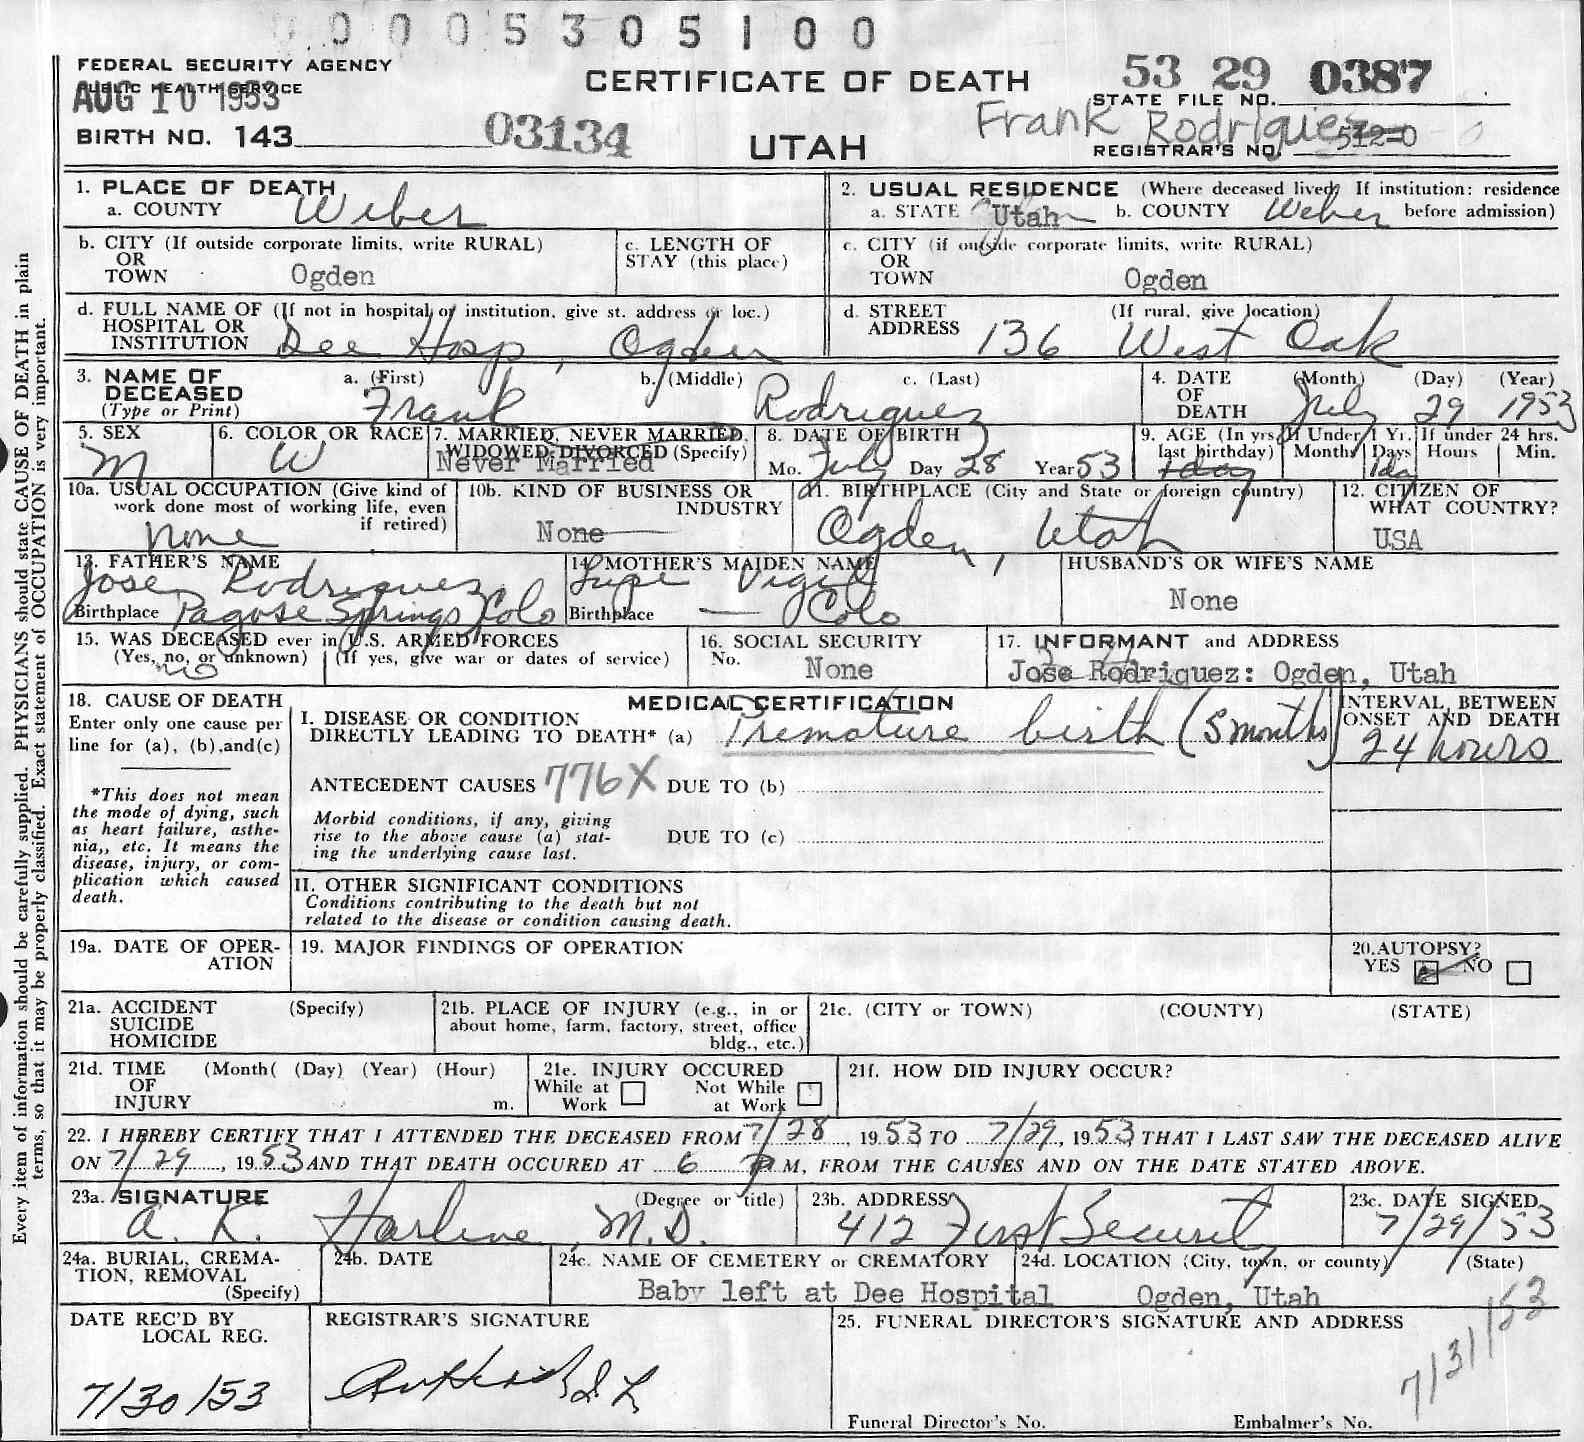 0 0 0 5 3 0 5 1 0 0
FEDERAL SECURITY AGENCY
PUBLIC HEALTH SERVICE
AUG 10 1953
CERTIFICATE OF DEATH
53 29 0387
STATE FILE NO.
Frank Rodriguez
BIRTH NO. 143 03134
UTAH
REGISTRAR'S NO. 512=0
1. PLACE OF DEATH
a. COUNTY Weber
2. USUAL RESIDENCE (Where deceased lived. If institution: residence before admission)
a. STATE Utah b. COUNTY Weber
b. CITY (If outside corporate limits, write RURAL)
OR
TOWN Ogden
c. LENGTH OF
STAY (this place)
c. CITY (if outside corporate limits, write RURAL)
OR
TOWN Ogden
d. FULL NAME OF (If not in hospital or institution, give st. address or loc.)
HOSPITAL OR
INSTITUTION Dee Hosp, Ogden
d. STREET (If rural, give location)
ADDRESS 136 West Oak
3. NAME OF
DECEASED
(Type or Print)
a. (First) b. (Middle) c. (Last)
Frank Rodriguez
4. DATE
OF
DEATH
(Month) (Day) (Year)
July 29 1953
5. SEX
M
6. COLOR OR RACE
W
7. MARRIED, NEVER MARRIED,
WIDOWED, DIVORCED (Specify)
Never Married
8. DATE OF BIRTH
Mo. July Day 28 Year 53
9. AGE (In yrs.
last birthday)
1 day
If Under 1 Yr.
Months Days
1da
If under 24 hrs.
Hours Min.
10a. USUAL OCCUPATION (Give kind of
work done most of working life, even
if retired)
none
10b. KIND OF BUSINESS OR
INDUSTRY
None
11. BIRTHPLACE (City and State or foreign country)
Ogden, Utah
12. CITIZEN OF
WHAT COUNTRY?
USA
13. FATHER'S NAME
Jose Rodriguez
Birthplace Pagose Springs Colo
14. MOTHER'S MAIDEN NAME
Lupe Vigil
Birthplace — Colo
HUSBAND'S OR WIFE'S NAME
None
15. WAS DECEASED ever in U.S. ARMED FORCES
(Yes, no, or unknown) (If yes, give war or dates of service)
no
16. SOCIAL SECURITY
No. None
17. INFORMANT and ADDRESS
Jose Rodriquez: Ogden, Utah
18. CAUSE OF DEATH
Enter only one cause per
line for (a), (b),and(c)
*This does not mean
the mode of dying, such
as heart failure, asthe-
nia,, etc. It means the
disease, injury, or com-
plication which caused
death.
MEDICAL CERTIFICATION
I. DISEASE OR CONDITION
DIRECTLY LEADING TO DEATH* (a) Premature birth (5 months)
INTERVAL BETWEEN
ONSET AND DEATH
24 hours
ANTECEDENT CAUSES 776X DUE TO (b)
Morbid conditions, if any, giving
rise to the above cause (a) stat-
ing the underlying cause last.
DUE TO (c)
II. OTHER SIGNIFICANT CONDITIONS
Conditions contributing to the death but not
related to the disease or condition causing death.
19a. DATE OF OPER-
ATION
19. MAJOR FINDINGS OF OPERATION
20.AUTOPSY?
YES NO
21a. ACCIDENT (Specify)
SUICIDE
HOMICIDE
21b. PLACE OF INJURY (e.g., in or
about home, farm, factory, street, office
bldg., etc.)
21c. (CITY or TOWN) (COUNTY) (STATE)
21d. TIME (Month( (Day) (Year) (Hour)
OF
INJURY m.
21e. INJURY OCCURED
While at Not While
Work at Work
21f. HOW DID INJURY OCCUR?
22. I HEREBY CERTIFY THAT I ATTENDED THE DECEASED FROM 7/28, 1953 TO 7/29, 1953 THAT I LAST SAW THE DECEASED ALIVE
ON 7/29, 1953 AND THAT DEATH OCCURED AT 6 P M, FROM THE CAUSES AND ON THE DATE STATED ABOVE.
23a. SIGNATURE (Degree or title)
A. K. Harline, M.D.
23b. ADDRESS
412 First Security
23c. DATE SIGNED
7/29/53
24a. BURIAL, CREMA-
TION, REMOVAL
(Specify)
24b. DATE
24c. NAME OF CEMETERY or CREMATORY
Baby left at Dee Hospital
24d. LOCATION (City, town, or county) (State)
Ogden, Utah
DATE REC'D BY
LOCAL REG.
7/30/53
REGISTRAR'S SIGNATURE
25. FUNERAL DIRECTOR'S SIGNATURE AND ADDRESS
7/31/53
Funeral Director's No. Embalmer's No.
Every item of information should be carefully supplied. PHYSICIANS should state CAUSE OF DEATH in plain
terms, so that it may be properly classified. Exact statement of OCCUPATION is very important.